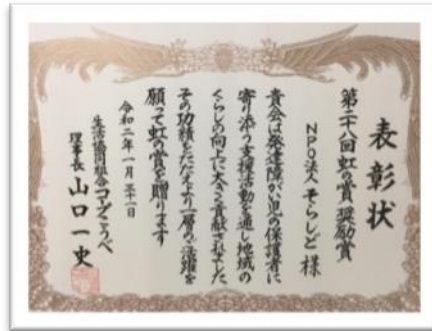 表彰状
第二十八回虹の賞 奨励賞
NPO法人 そらしど 様
貴会は発達障がい児の保護者に
寄り添う支援活動を通し地域の
くらしの向上に大きく貢献されました
その功績をたたえより一層のご活躍を
願って虹の賞を贈ります
令和二年一月三十一日
生活協同組合コープこうべ
理事長 山口一史